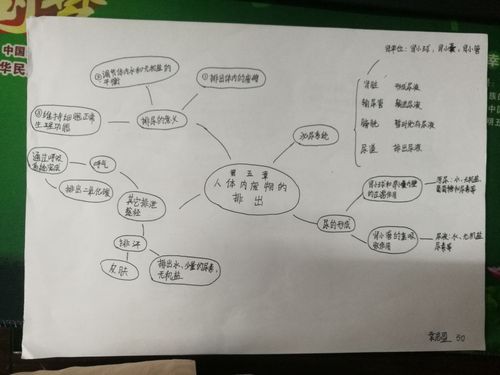 肾单位：肾小球，肾小囊，肾小管
②调节体内水和无机盐的
平衡
①排出体内的废物
肾脏 形成尿液
输尿管 输送尿液
膀胱 暂时贮存尿液
尿道 排出尿液
③维持细胞正常
生理功能
排尿的意义
泌尿系统
通过呼吸
系统完成
呼气
排出二氧化碳
其它排泄
途径
第五章
人体内废物的
排出
肾小球和肾小囊内壁
的过滤作用
原尿：水，无机盐，
葡萄糖和尿素等
尿的形成
排汗
皮肤
排出水，少量的尿素，
无机盐
肾小管的重吸
收作用
尿液：水，无机盐
尿素等
50
中国
华民